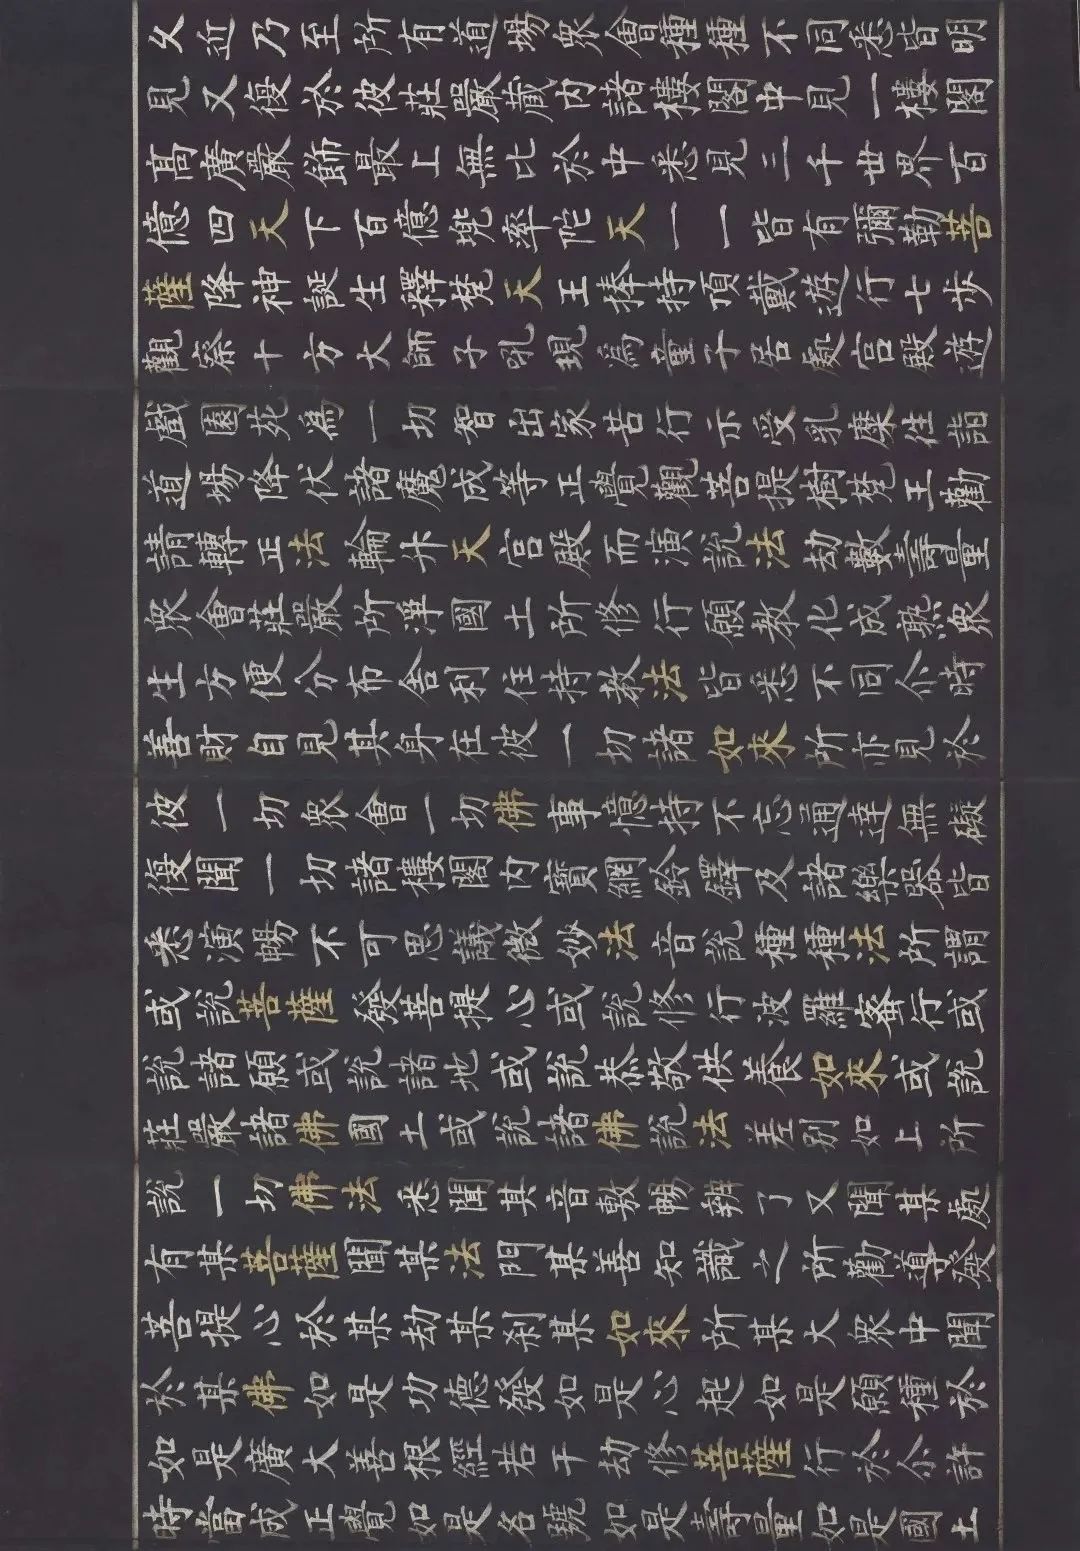 久近乃至所有道場眾會種種不同悉皆明
見又復於彼莊嚴藏內諸樓閣中見一樓閣
高廣嚴飾最上無比於中悉見三千世界百
億四天下百億兜率陀天一一皆有彌勒菩
薩降神誕生釋梵天王捧持頂戴遊行七步
觀察十方大師子吼現為童子居處宮殿遊
戲園苑為一切智出家苦行示受乳糜往詣
道場降伏諸魔成等正覺觀菩提樹梵王勸
請轉正法輪升天宮殿而演說法劫數壽量
眾會莊嚴所淨國土所修行願教化成熟眾
生方便分布舍利住持教法皆悉不同尒時
善財自見其身在彼一切諸如來所亦見於
彼一切眾會一切佛事憶持不忘通達無礙
復聞一切諸樓閣內寶網鈴鐸及諸樂器皆
悉演暢不可思議微妙法音說種種法所謂
或說菩薩發菩提心或說修行波羅蜜行或
說諸願或說諸地或說恭敬供養如來或說
莊嚴諸佛國土或說諸佛說法差別如上所
說一切佛法悉聞其音敷暢辨了又聞某處
有某菩薩聞某法門某善知識之所勸導發
菩提心於某劫某剎某如來所某大眾中聞
於某佛如是功德發如是心起如是願種於
如是廣大善根經若干劫修菩薩行於尒許
時當成正覺如是名號如是壽量如是國土